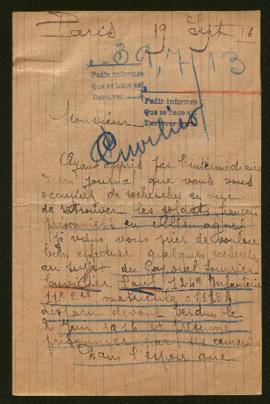 Paris 19 Sept 16
39,713
Pedir informes
Que se hace así
Monsieur
Pedir informes
Que se hace así
Cuvilier
Ayant appris par l'intermédiaire
d'un journal que vous vous
occupiez de recherches en vue
de retrouver les soldats français
prisonniers en Allemagne
je viens vous prier de vouloir
bien effectuer quelques recherches
au sujet du Caporal fourrier
Cuvilier Paul 124e Infanterie
11e Cie matricule
disparu devant Verdun le
2 Juin 1916 et présumé
prisonnier par ses camarades
Dans l'espoir que